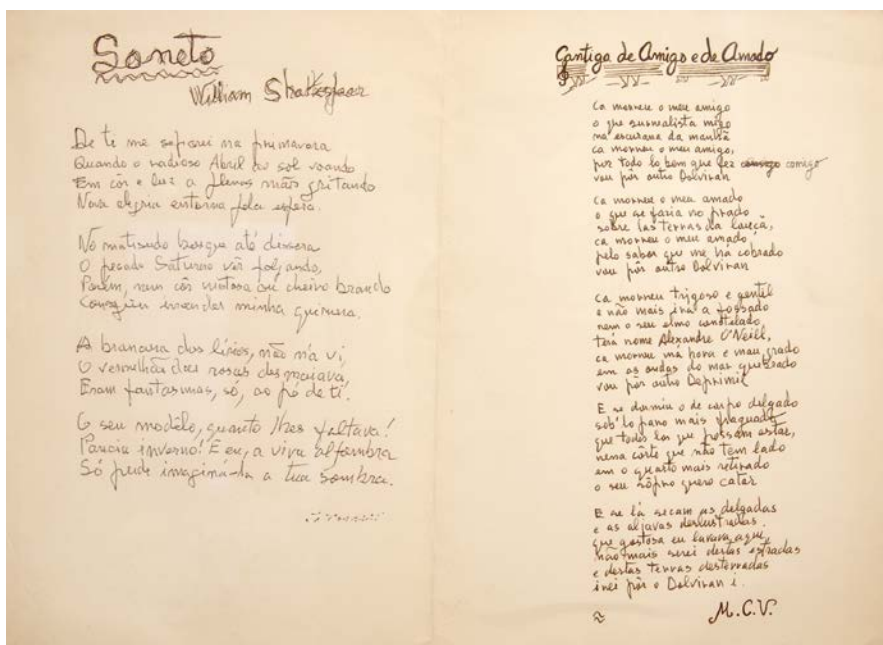 Soneto
William Shakespear
De ti me separei na primavera
Quando o radioso Abril ao sol voando
Em côr e luz a plenas mãos gritando
Nova alegria entorna pela esfera.
No matisado bosque até dissera
O pesado Saturno vir folgando,
Porém, nem côr vistosa ou cheiro brando
Conseguiu minha quimera.
A brancura dos lírios, não n'a vi,
O vermelhão das rosas desmaiava,
Eram fantasmas, só, ao pé de ti.
O seu modêlo, quanto lhes faltava!
Parecia inverno! E eu, a viva alfombra
Só pude imaginá-la a tua sombra.
Cantiga de Amigo e de Amado
Ca morreu o meu amigo
o que surrealista migo
na escurana da manhã
ca morreu o meu amigo,
por todo lo bem que fez comigo
vou pôr outro Dolviran
Ca morreu o meu amado
o que se fazia no prado
sobre las ternas da
ca morreu o meu amado,
pelo sabor que me há cobrado
vou pôr outro Dolviran
Ca morreu trigoso e gentil
e não mais irá a fossado
nem o seu elmo constelado
terá nome Alexandre O'Neill,
ca morreu má hora e mau grado
em as ondas do mar quebrado
vou pôr outro Deprimil
E se dormiu o de corpo delgado
sob' lo pano mais fraguado
que todos los que possam estar,
nema côrte que não tem lado
em o quarto mais retirado
o seu sôpro quero catar
E se lá secam as delgadas
e as aljavas deslustradas
que gostosa eu lavava aqui,
não mais serei destas estradas
e destas terras desterradas
irei pôr o Dolviran i.
M.C.V.